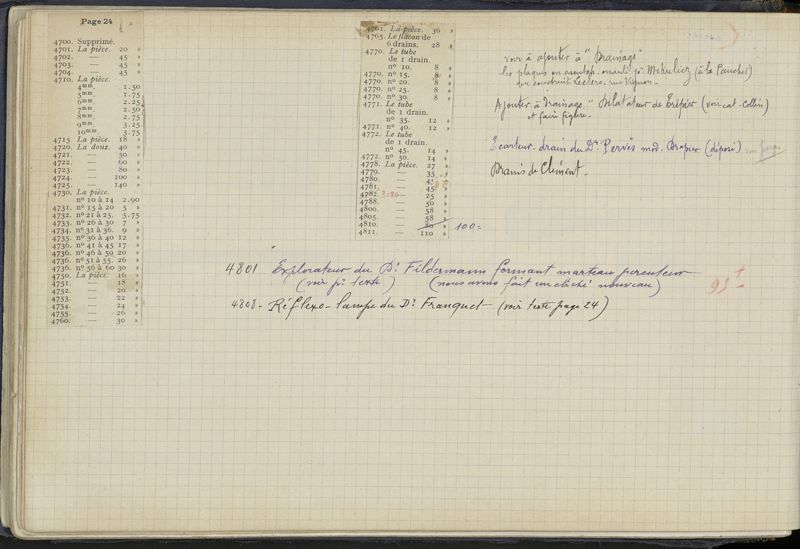 Page 24
4700. Supprimé.
4701. La pièce. 20 »
4702. — 45 »
4703. — 45 »
4704. — 45 »
4710. La pièce.
4mm. 1.50
5mm. 1.75
6mm. 2.25
7mm. 2.50
8mm. 2.75
9mm. 3.25
10mm. 3.75
4715. La pièce. 18 »
4720. La douz. 40 »
4721. — 50 »
4722. — 60 »
4723. — 80 »
4724. — 100 »
4725. — 140 »
4730. La pièce.
nº 10 à 14 2.90
4731. nº 15 à 20 5 »
4732. nº 21 à 25. 5.75
4733. nº 26 à 30 7 »
4734. nº 31 à 36. 9 »
4735. nº 36 à 40 12 »
4736. nº 41 à 45 17 »
4736. nº 46 à 50 20 »
4736. nº 51 à 55. 26 »
4736. nº 56 à 60 30 »
4750. La pièce. 16 »
4751. — 18 »
4752. — 20 »
4753. — 22 »
4754. — 24 »
4755. — 26 »
4760. — 30 »
4761. La pièce. 36 »
4765. Le flacon de
6 drains. 28 »
4770. Le tube
de 1 drain.
nº 10. 8 »
4770. nº 15. 8 »
4770. nº 20. 8 »
4770. nº 25. 8 »
4770. nº 30. 8 »
4771. Le tube
de 1 drain.
nº 35. 12 »
4771. nº 40. 12 »
4772. Le tube
de 1 drain.
nº 45. 14 »
4772. nº 50. 14 »
4778. La pièce. 27 »
4779. — 35
4780. — 45
4781. — 45
4782. 3080 — 25 »
4788. — 50 »
4800. — 58 »
4805. — 58 »
4810. — 80 » 100=
4811. — 110 »
voir à ajouter à "Drainage"
les plaques en caoutch. Mikulicz (à la Pauchet)
que construit Leclerc. rue Vignon.
Ajouter à Drainage "Dilatateur de Trépier (voir cat. Collin)
et faire figure.
Ecarteur-drain du Dr. Pervès mod. Drapier (déposé)
Drains de Clément.
4801 Explorateur du Dr Fildermann formant marteau percuteur
(voir pr texte) (nous avons fait un cliché nouveau) 95
4808 - Réflexo-lampe du Dr Franquet (voir texte page 24)